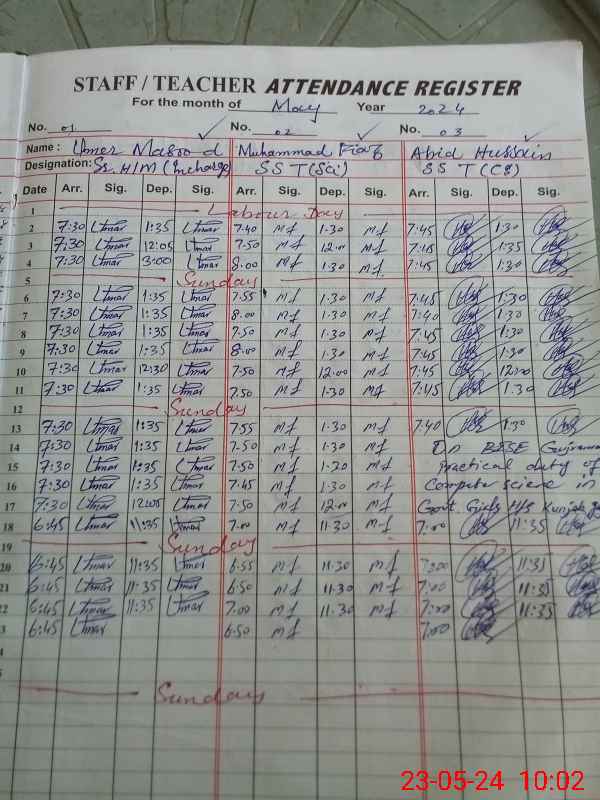 STAFF / TEACHER ATTENDANCE REGISTER
For the month of May Year 2024
No. 01 No. 02 No. 03
Name : Umer Masood Muhammad Abid Hussain
Designation: Sr. H/M (Incharge) SST (Sci) SST (CS)
Date Arr. Sig. Dep. Sig. Arr. Sig. Dep. Sig. Arr. Sig. Dep. Sig.
1 Labour Day
2 7:30 Umar 1:35 Umar 7.40 MF 1.30 MF 7:45 1:30
3 7:30 Umar 12:05 Umar 7.50 MF 12.00 MF 1:35
4 7:30 Umar 3:00 Umar 8.00 MF 1.30 MF 7:45 1:30
5 Sunday
6 7:30 Umar 1:35 Umar 7.55 MF 1.30 MF 7:45 1:30
7 7:30 Umar 1:35 Umar 8.00 MF 1.30 MF 7:40 1:30
8 7:30 Umar 1:35 Umar 7.50 MF 1.30 MF 7:45 1:30
9 7:30 Umar 1:35 Umar 8.00 MF 1.30 MF 7:45 1:30
10 7:30 Umar 12:30 Umar 7.50 MF 12.00 MF 7:45 12:00
11 7:30 Umar 1:35 Umar 7.50 MF 1.30 MF 7:45 1:30
12 Sunday
13 7:30 Umar 1:35 Umar 7.55 MF 1.30 MF 7:40 1:30
14 7:30 Umar 1:35 Umar 7.50 MF 1.30 MF On BISE
15 7:30 Umar 1:35 Umar 7.50 MF MF Practical duty of
16 7:30 Umar 1:35 Umar 7.45 MF 1.30 MF Computer science in
17 7:30 Umar 12:05 Umar 7.50 MF 12.00 MF Govt. Girls H/S Kunjah
18 6:45 Umar 11:35 Umar 7.00 MF 11.30 MF 7:00 11:35
19 Sunday
20 6:45 Umar 11:35 Umar 6.55 MF 11.30 MF 7:00 11:35
21 6:45 Umar 11:35 Umar 6.50 MF 11.30 MF 7:00 11:35
22 6:45 Umar 11:35 Umar 7.00 MF 11.30 MF 7:00 11:35
3 6:45 Umar 6.50 MF 7:00
Sunday
23-05-24 10:02